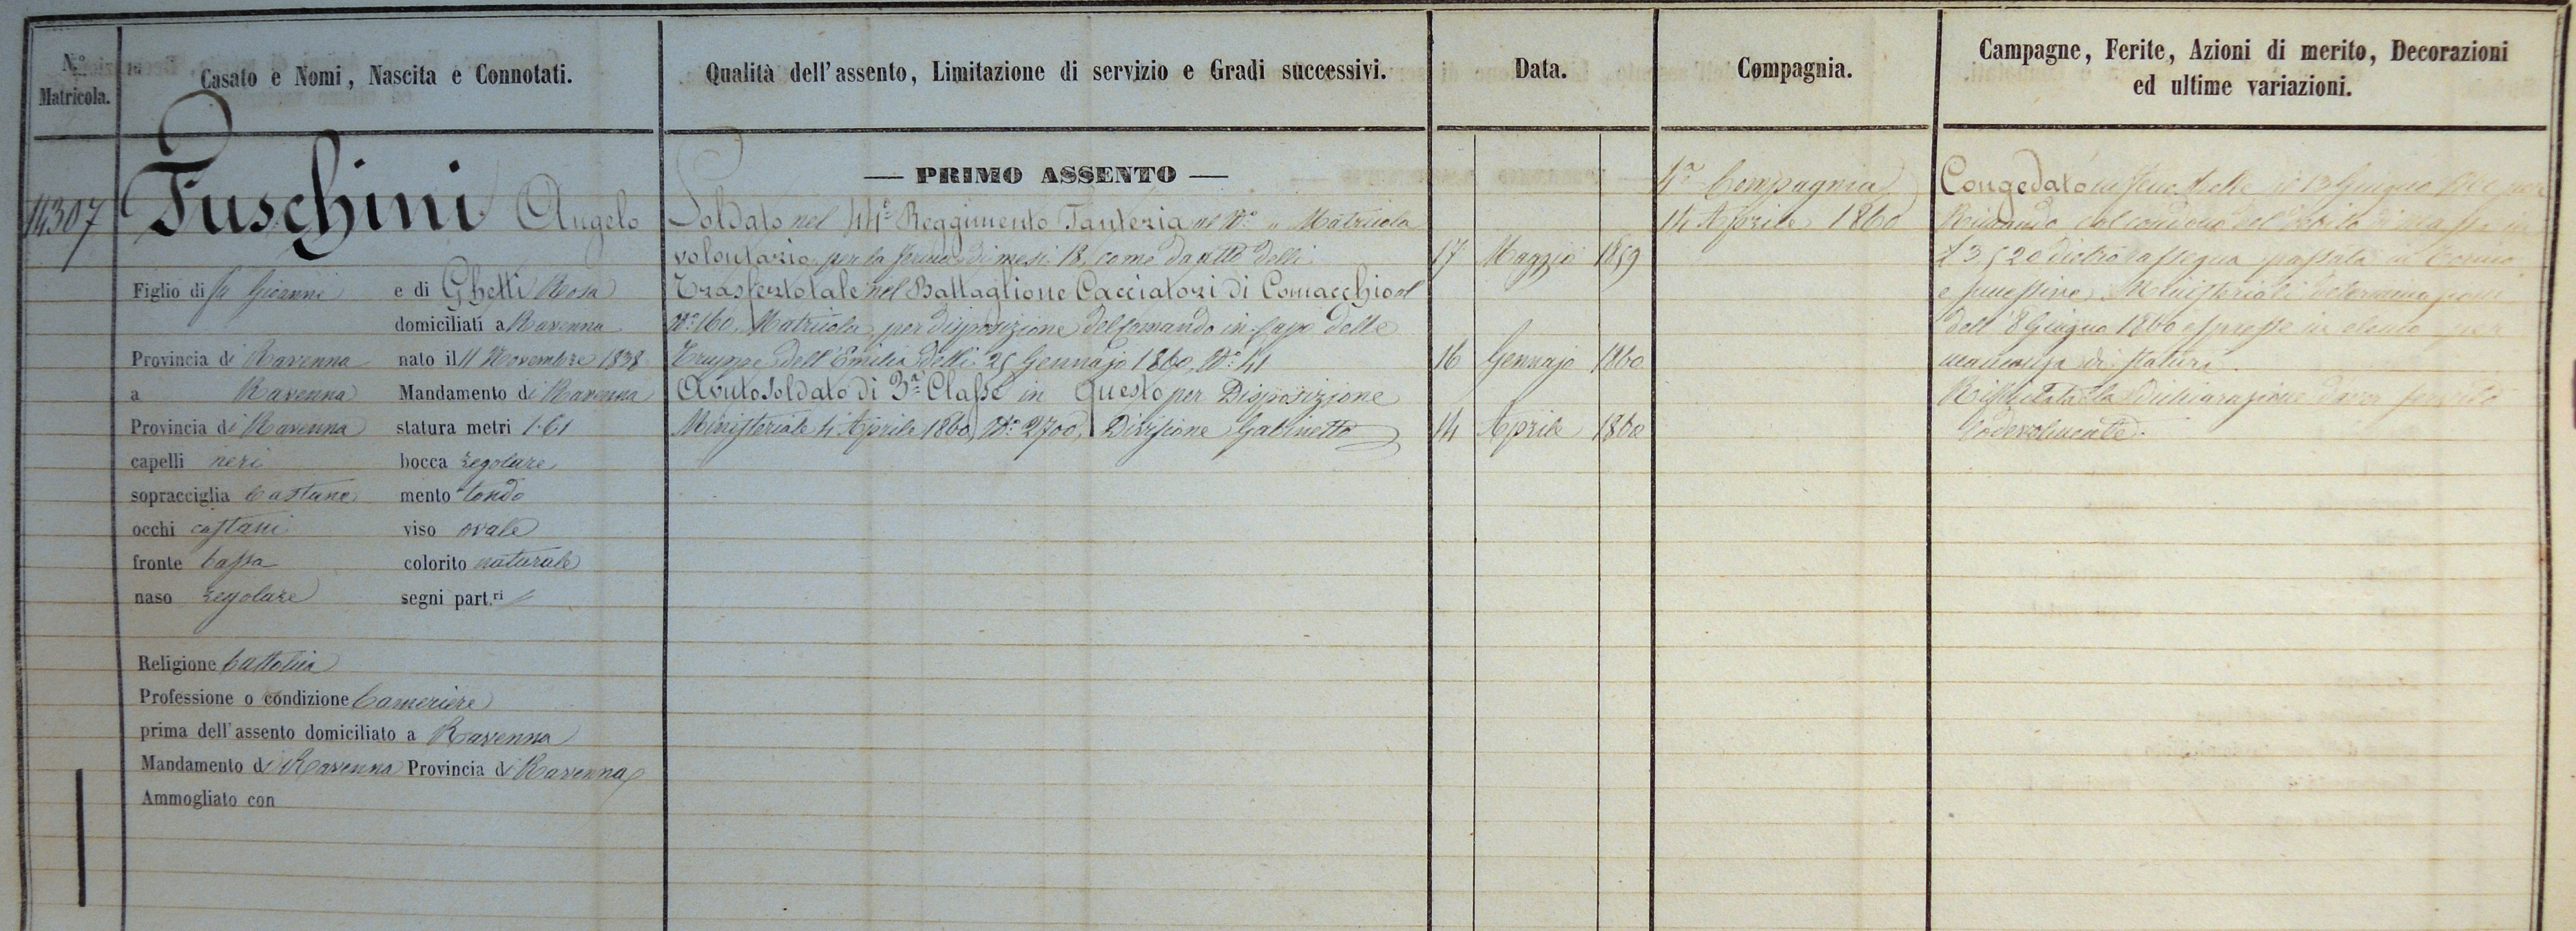 N.º Matricola.
Casato e Nomi, Nascita e Connotati.
Qualità dell'assento, Limitazione di servizio e Gradi successivi.
Data.
Compagnia.
Campagne, Ferite, Azioni di merito, Decorazioni
ed ultime variazioni.
14307
Fuschini Angelo
Figlio di fu Giovanni e di Ghetti Rosa
domiciliati a Ravenna
Provincia di Ravenna nato il 11 Novembre 1838
a Ravenna Mandamento di Ravenna
Provincia di Ravenna statura metri 1.61
capelli neri bocca regolare
sopracciglia Castane mento tondo
occhi castani viso ovale
fronte bassa colorito naturale
naso regolare segni part.ri
Religione Cattolica
Professione o condizione Cameriere
prima dell'assento domiciliato a Ravenna
Mandamento di Ravenna Provincia di Ravenna
Ammogliato con
— PRIMO ASSENTO —
Soldato nel 44º Reggimento Fanteria al Nº " Matricola
volontario per la ferma di mesi 18, come da atto delli 17 Maggio 1859
Trasfertotale nel Battaglione Cacciatori di Comacchio al
Nº 160 Matricola per disposizione del Comando in Capo delle
Truppe dell'Emilia delli 25 Gennajo 1860 Nº 41 16 Gennajo 1860
Avuto Soldato di 3ª Classe in Questo per Disposizione
Ministeriale 4 Aprile 1860 Nº 2700, Divisione Gabinetto 14 Aprile 1860
4ª Compagnia
14 Aprile 1860
Congedato in li 13 Giugno
Rimando col condono del debito di massa in
£ 35 20 dietro rassegna passata in
e Ministeriali determinazioni
dell' 8 Giugno 1860 espresse in elenco per
mancanza di statura.
Rilasciata la dichiarazione d'aver servito
lodevolmente.